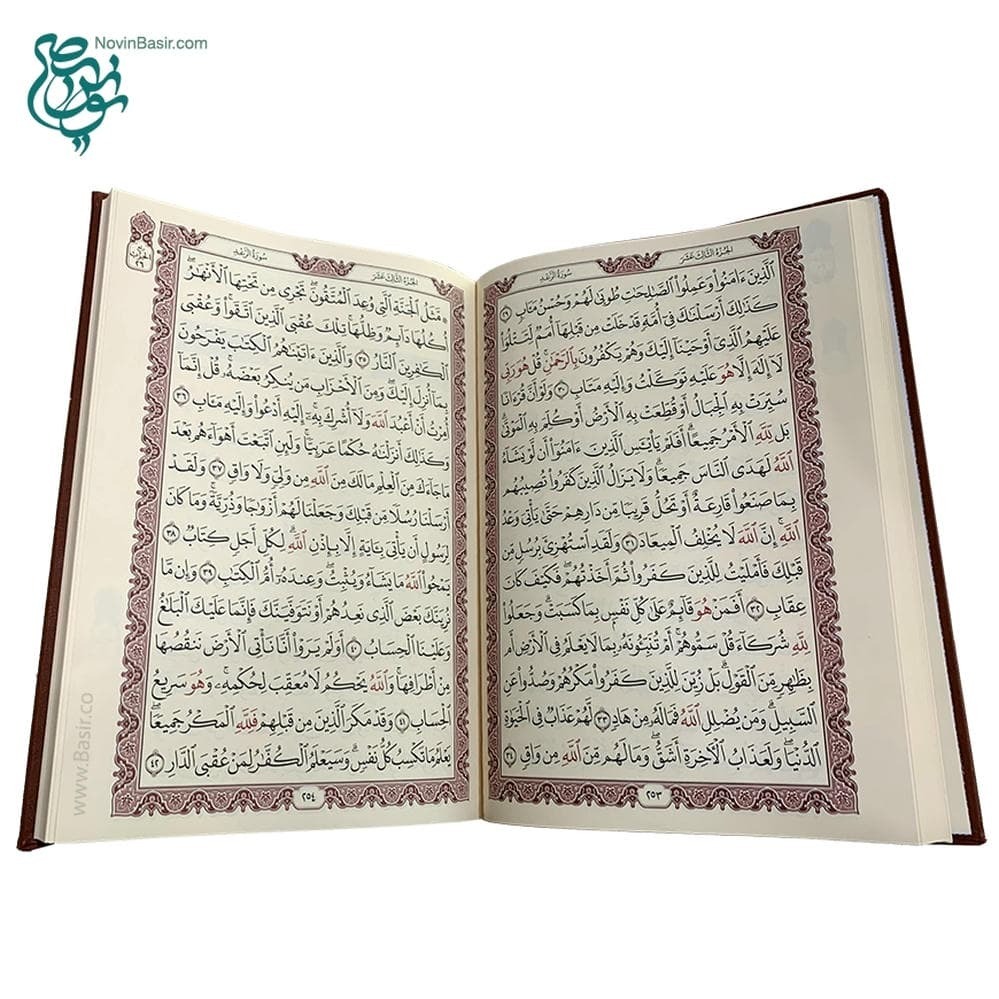 NovinBasir.com
الجزء الثالث عشر
سورة الرعد
الَّذِينَ ءَامَنُوا۟ وَعَمِلُوا۟ الصَّٰلِحَٰتِ طُوبَىٰ لَهُمْ وَحُسْنُ مَـَٔابٍ ٢٩
كَذَٰلِكَ أَرْسَلْنَٰكَ فِىٓ أُمَّةٍ قَدْ خَلَتْ مِن قَبْلِهَآ أُمَمٌ لِّتَتْلُوَا۟
عَلَيْهِمُ الَّذِىٓ أَوْحَيْنَآ إِلَيْكَ وَهُمْ يَكْفُرُونَ بِالرَّحْمَٰنِ ۚ قُلْ هُوَ رَبِّى
لَآ إِلَٰهَ إِلَّا هُوَ عَلَيْهِ تَوَكَّلْتُ وَإِلَيْهِ مَتَابِ ٣٠ وَلَوْ أَنَّ قُرْءَانًا
سُيِّرَتْ بِهِ الْجِبَالُ أَوْ قُطِّعَتْ بِهِ الْأَرْضُ أَوْ كُلِّمَ بِهِ الْمَوْتَىٰ ۗ
بَل لِّلَّهِ الْأَمْرُ جَمِيعًا ۗ أَفَلَمْ يَا۟يْـَٔسِ الَّذِينَ ءَامَنُوٓا۟ أَن لَّوْ يَشَآءُ
اللَّهُ لَهَدَى النَّاسَ جَمِيعًا ۗ وَلَا يَزَالُ الَّذِينَ كَفَرُوا۟ تُصِيبُهُم
بِمَا صَنَعُوا۟ قَارِعَةٌ أَوْ تَحُلُّ قَرِيبًا مِّن دَارِهِمْ حَتَّىٰ يَأْتِىَ وَعْدُ
اللَّهِ ۚ إِنَّ اللَّهَ لَا يُخْلِفُ الْمِيعَادَ ٣١ وَلَقَدِ اسْتُهْزِئَ بِرُسُلٍ مِّن
قَبْلِكَ فَأَمْلَيْتُ لِلَّذِينَ كَفَرُوا۟ ثُمَّ أَخَذْتُهُمْ ۖ فَكَيْفَ كَانَ
عِقَابِ ٣٢ أَفَمَنْ هُوَ قَآئِمٌ عَلَىٰ كُلِّ نَفْسٍۭ بِمَا كَسَبَتْ ۗ وَجَعَلُوا۟
لِلَّهِ شُرَكَآءَ قُلْ سَمُّوهُمْ ۚ أَمْ تُنَبِّـُٔونَهُۥ بِمَا لَا يَعْلَمُ فِى الْأَرْضِ أَم
بِظَٰهِرٍ مِّنَ الْقَوْلِ ۗ بَلْ زُيِّنَ لِلَّذِينَ كَفَرُوا۟ مَكْرُهُمْ وَصُدُّوا۟ عَنِ
السَّبِيلِ ۗ وَمَن يُضْلِلِ اللَّهُ فَمَا لَهُۥ مِنْ هَادٍ ٣٣ لَّهُمْ عَذَابٌ فِى الْحَيَوٰةِ
الدُّنْيَا ۖ وَلَعَذَابُ الْءَاخِرَةِ أَشَقُّ ۖ وَمَا لَهُم مِّنَ اللَّهِ مِن وَاقٍ ٣٤
٢٥٣
الجزء الثالث عشر
سورة الرعد
مَّثَلُ الْجَنَّةِ الَّتِى وُعِدَ الْمُتَّقُونَ ۖ تَجْرِى مِن تَحْتِهَا الْأَنْهَٰرُ ۖ
أُكُلُهَا دَآئِمٌ وَظِلُّهَا ۚ تِلْكَ عُقْبَى الَّذِينَ اتَّقَوا۟ ۖ وَّعُقْبَى
الْكَٰفِرِينَ النَّارُ ٣٥ وَالَّذِينَ ءَاتَيْنَٰهُمُ الْكِتَٰبَ يَفْرَحُونَ
بِمَآ أُنزِلَ إِلَيْكَ ۖ وَمِنَ الْأَحْزَابِ مَن يُنكِرُ بَعْضَهُۥ ۚ قُلْ إِنَّمَآ
أُمِرْتُ أَنْ أَعْبُدَ اللَّهَ وَلَآ أُشْرِكَ بِهِۦٓ ۚ إِلَيْهِ أَدْعُوا۟ وَإِلَيْهِ مَـَٔابِ ٣٦
وَكَذَٰلِكَ أَنزَلْنَٰهُ حُكْمًا عَرَبِيًّا ۚ وَلَئِنِ اتَّبَعْتَ أَهْوَآءَهُم بَعْدَ
مَا جَآءَكَ مِنَ الْعِلْمِ مَا لَكَ مِنَ اللَّهِ مِن وَلِىٍّ وَلَا وَاقٍ ٣٧ وَلَقَدْ
أَرْسَلْنَا رُسُلًا مِّن قَبْلِكَ وَجَعَلْنَا لَهُمْ أَزْوَٰجًا وَذُرِّيَّةً ۚ وَمَا كَانَ
لِرَسُولٍ أَن يَأْتِىَ بِـَٔايَةٍ إِلَّا بِإِذْنِ اللَّهِ ۗ لِكُلِّ أَجَلٍ كِتَابٌ ٣٨
يَمْحُوا۟ اللَّهُ مَا يَشَآءُ وَيُثْبِتُ ۖ وَعِندَهُۥٓ أُمُّ الْكِتَٰبِ ٣٩ وَإِن مَّا
نُرِيَنَّكَ بَعْضَ الَّذِى نَعِدُهُمْ أَوْ نَتَوَفَّيَنَّكَ فَإِنَّمَا عَلَيْكَ الْبَلَٰغُ
وَعَلَيْنَا الْحِسَابُ ٤٠ أَوَلَمْ يَرَوْا۟ أَنَّا نَأْتِى الْأَرْضَ نَنقُصُهَا
مِنْ أَطْرَافِهَا ۚ وَاللَّهُ يَحْكُمُ لَا مُعَقِّبَ لِحُكْمِهِۦ ۚ وَهُوَ سَرِيعُ
الْحِسَابِ ٤١ وَقَدْ مَكَرَ الَّذِينَ مِن قَبْلِهِمْ فَلِلَّهِ الْمَكْرُ جَمِيعًا ۖ
يَعْلَمُ مَا تَكْسِبُ كُلُّ نَفْسٍ ۗ وَسَيَعْلَمُ الْكُفَّٰرُ لِمَنْ عُقْبَى الدَّارِ ٤٢
٢٥٤
www.Basir.co